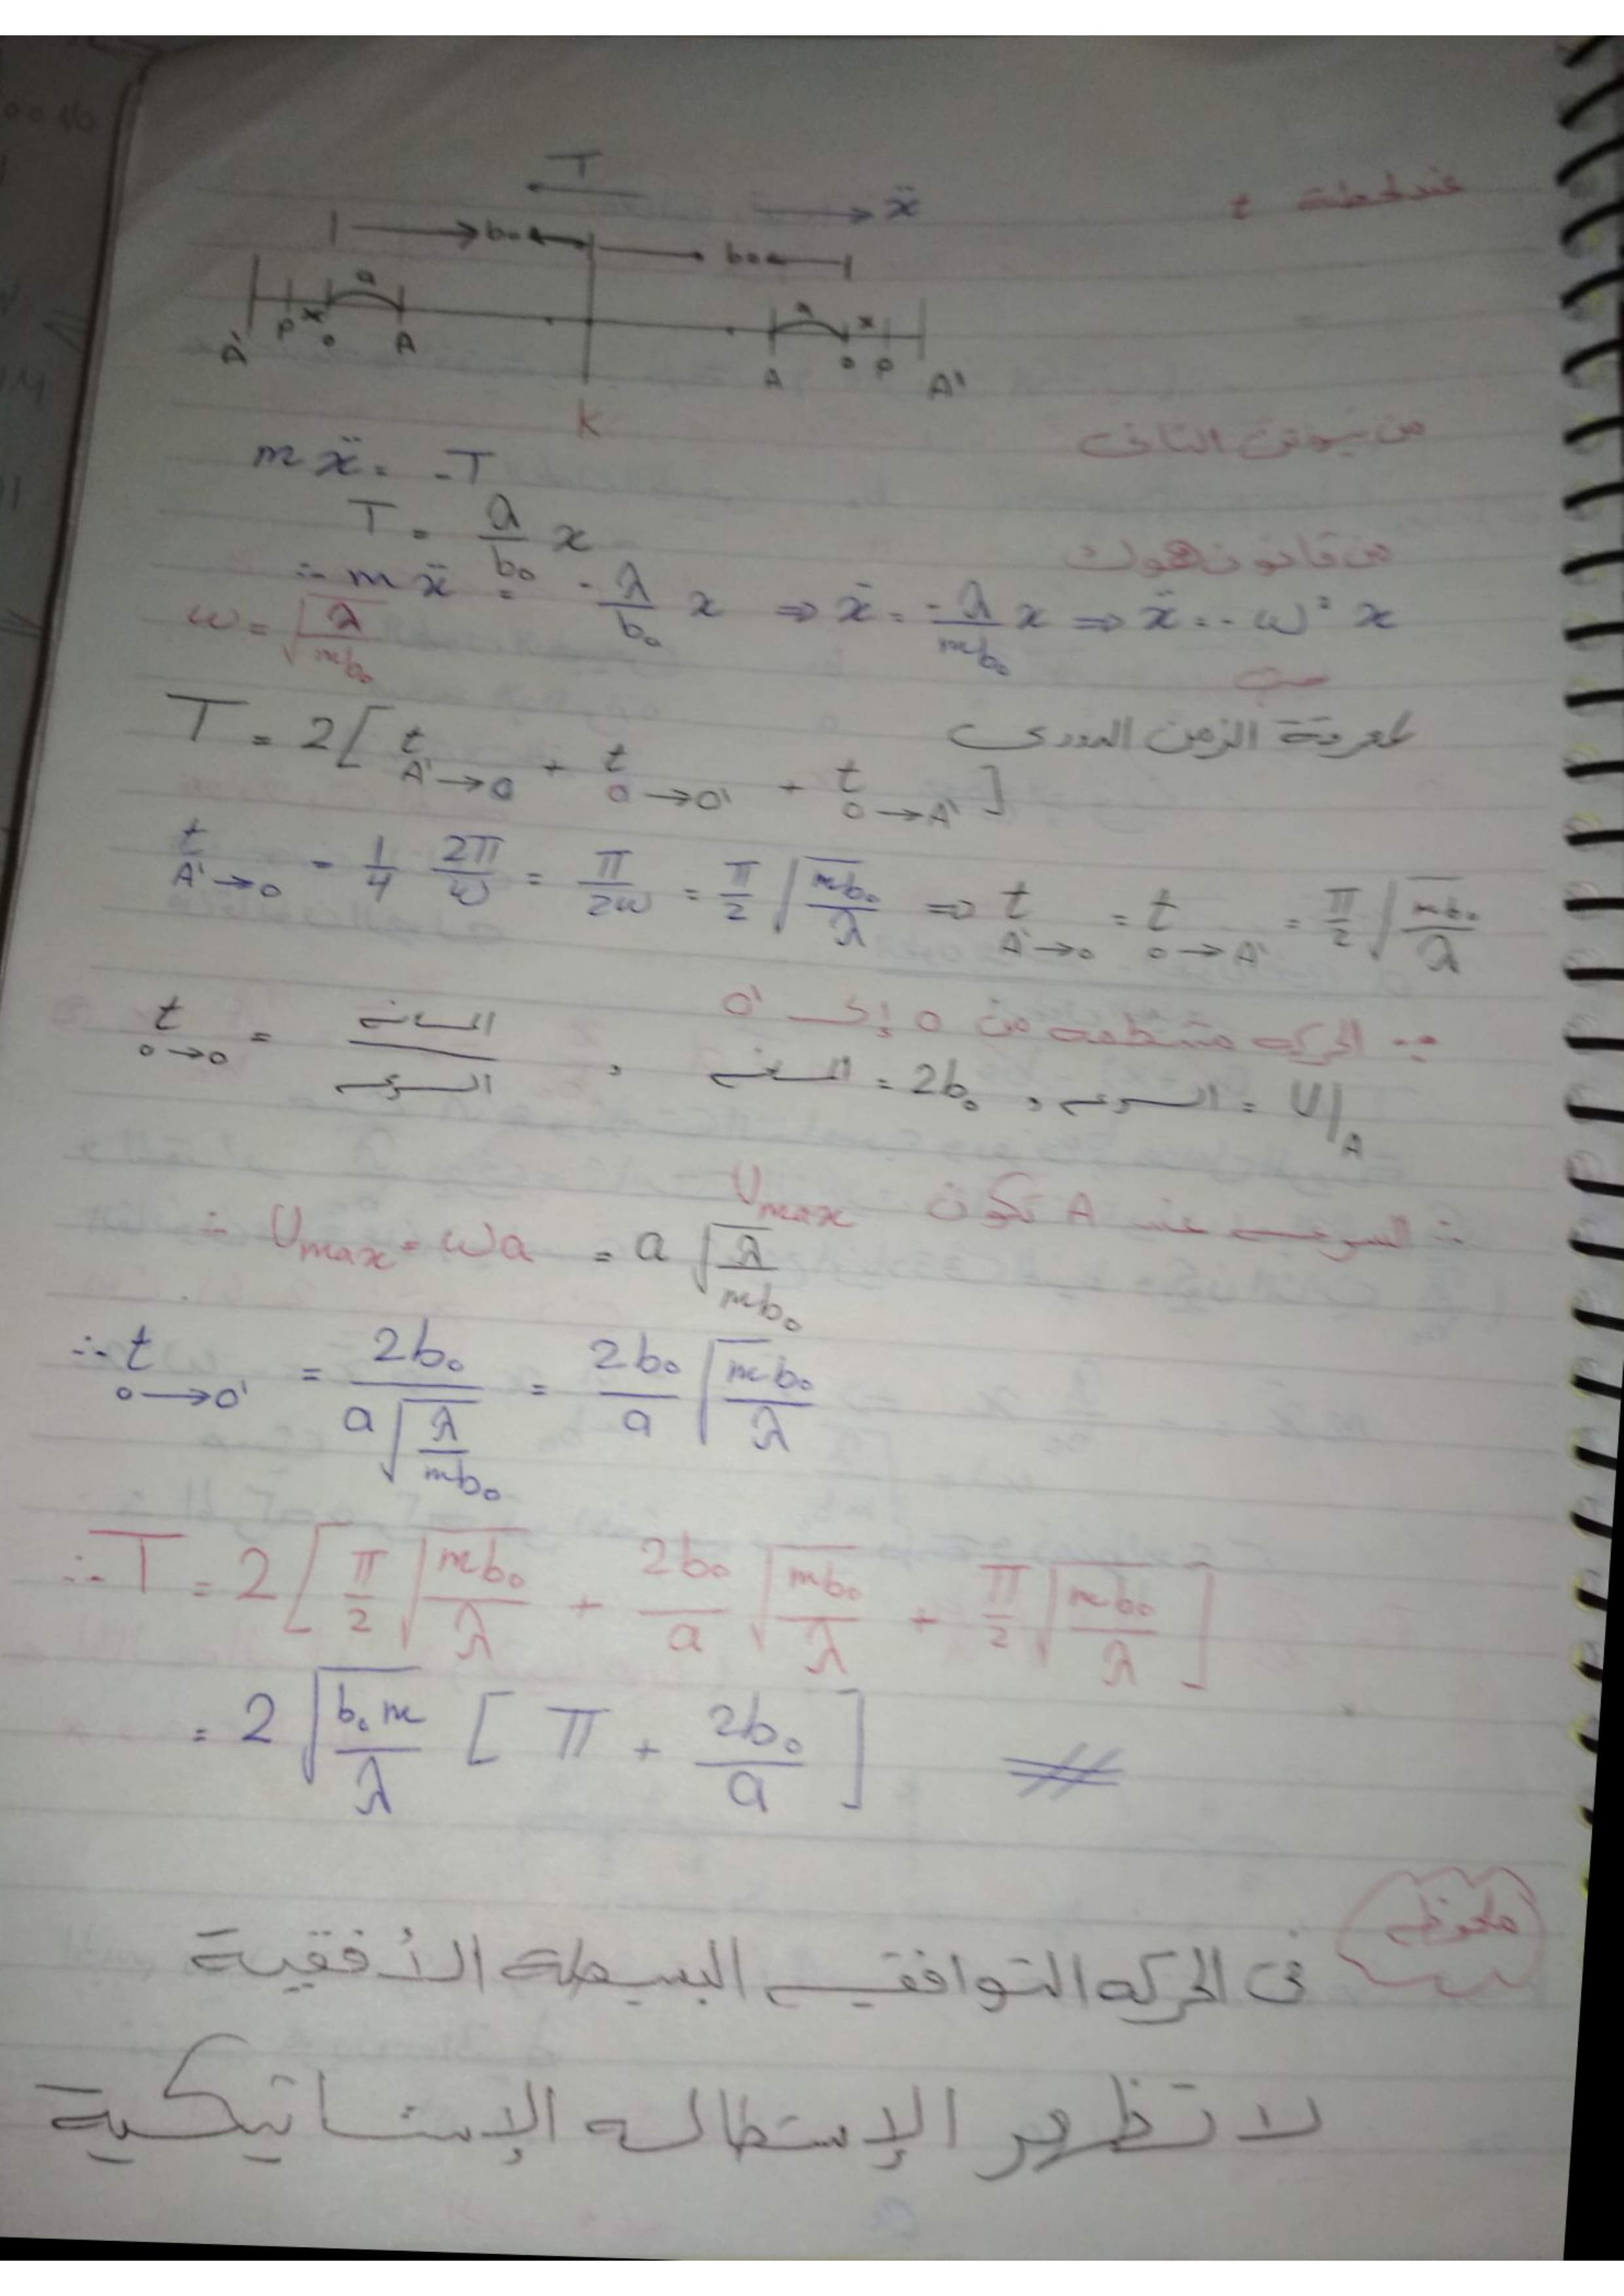 عند لحظة t
T
ẍ
b₀ b₀
a a
A' P x o A A x o P A'
K
من نيوتن الثانى
mẍ = -T
من قانون هوك
T = a/b₀ x
∴ mẍ = -λ/b₀ x ⇒ ẍ = -λ/mb₀ x ⇒ ẍ = -ω² x
ω = √(λ/mb₀)
لمعرفة الزمن الدورى
T = 2[ t A'→o + t o→o' + t o→A' ]
t A'→o = 1/4 2π/ω = π/2ω = π/2 √(mb₀/λ) ⇒ t A'→o = t o→A' = π/2 √(mb₀/λ)
∵ الحركه منتظمه من o إلى o'
t o→o = المسافه / السرعه , المسافه = 2b₀ , السرعه = U|A
∴ السرعه عند A تكون Umax
∴ Umax = ωa = a √(λ/mb₀)
∴ t o→o' = 2b₀ / a√(λ/mb₀) = 2b₀/a √(mb₀/λ)
∴ T = 2[ π/2 √(mb₀/λ) + 2b₀/a √(mb₀/λ) + π/2 √(mb₀/λ) ]
= 2 √(b₀m/λ) [ π + 2b₀/a ]
ملحوظه
فى الحركه التوافقيه البسيطة الأفقية
لا تظهر الإستطاله الإستاتيكية